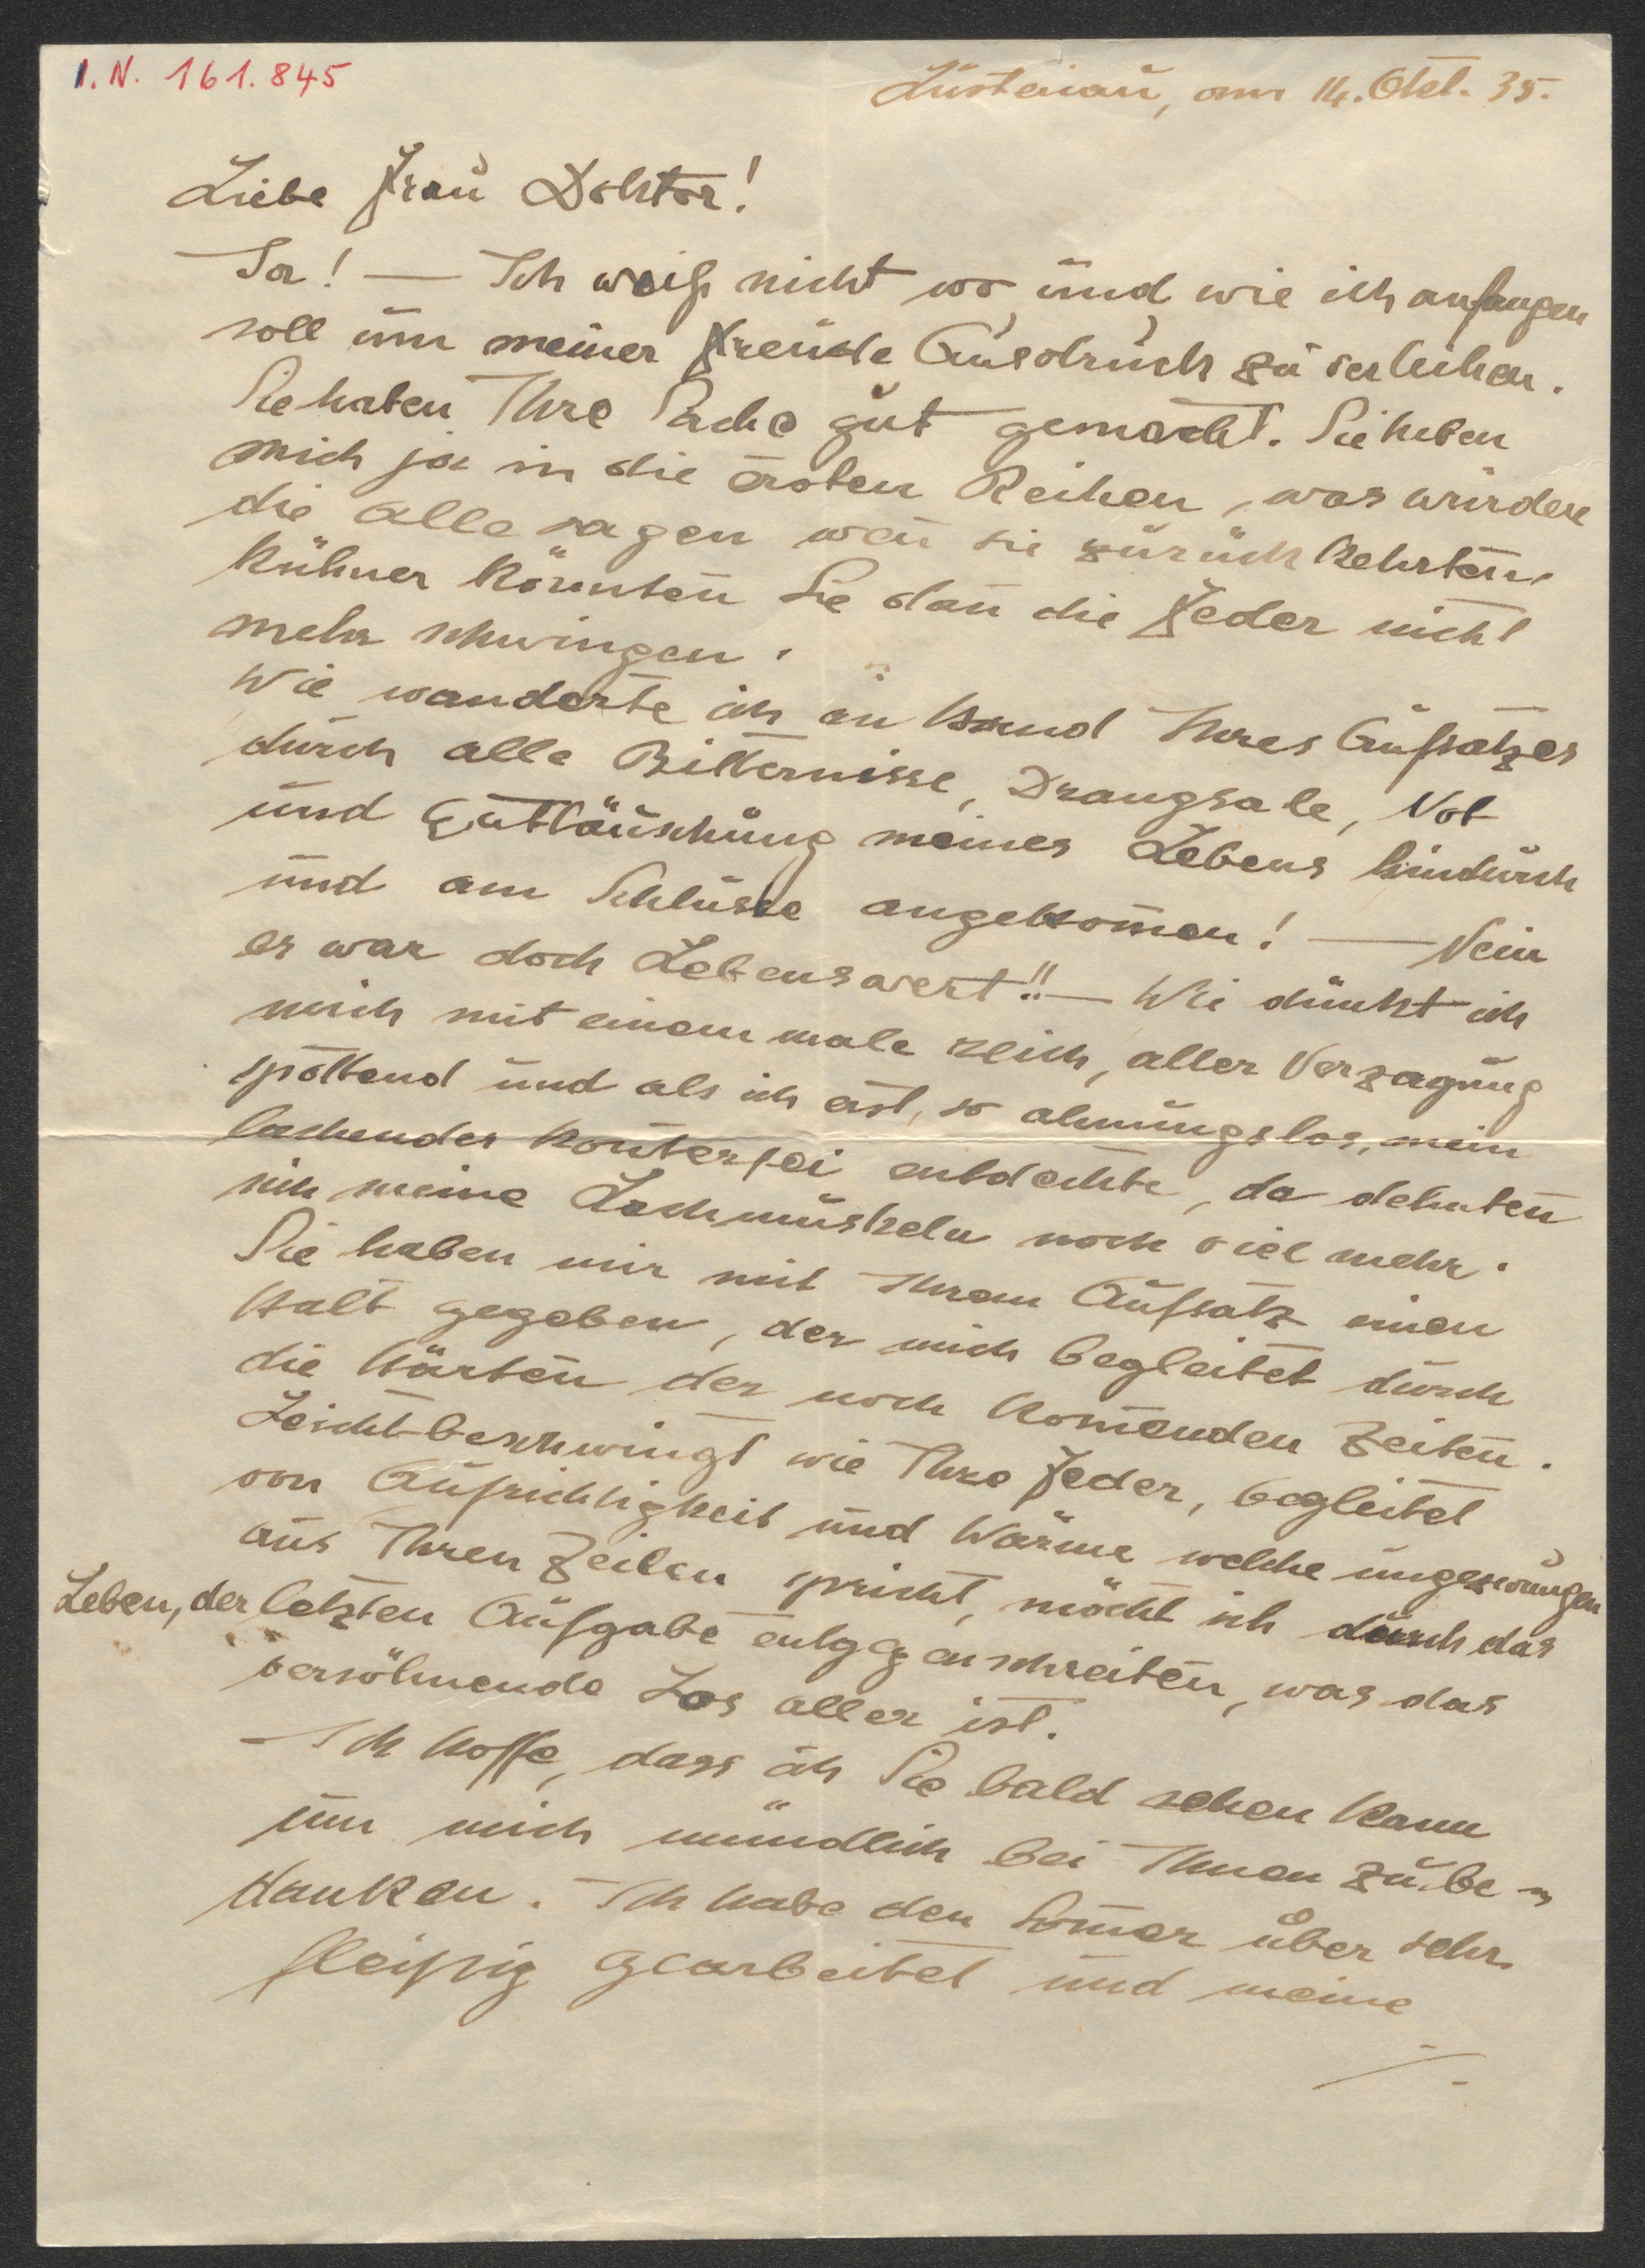 I.N. 161.845
Lustenau, am 14. Okt. 35.
Liebe Frau Doktor!
Ja! — Ich weiß nicht wo und wie ich anfangen
soll um meiner Freude Ausdruck zu verleihen.
Sie haben Ihre Sache gut gemacht. Sie heben
mich ja in die ersten Reihen, was würden
die alle sagen wen̄ sie zurück kehrten,
kühner könnten Sie dan̄ die Feder nicht
mehr schwingen.
Wie wanderte ich an Hand Ihres Aufsatzes
durch alle Bitternisse, Drangsale, Not
und Enttäuschung meines Lebens hindurch
und am Schlusse angekom̄en! — Nein
es war doch Lebenswert!! — Wie dünkt ich
mich mit einem male reich, aller Verzagung
spottend und als ich erst, so ahnungslos, mein
lachendes Konterfei entdeckte, da dehnten
sich meine Lachmuskeln noch viel mehr.
Sie haben mir mit Ihrem Aufsatz einen
Halt gegeben, der mich begleitet durch
die Härten der noch kom̄enden Zeiten.
Leicht beschwingt wie Ihre Feder, begleitet
von Aufrichtigkeit und Wärme welche ungezwungen
aus Ihren Zeilen spricht, möcht ich durch das
Leben, der letzten Aufgabe entgegenschreiten, was das
versöhnende Los aller ist.
Ich hoffe, dass ich Sie bald sehen kann
um mich mündlich bei Ihnen zu be-
danken. Ich habe den Som̄er über sehr
fleißig gearbeitet und meine